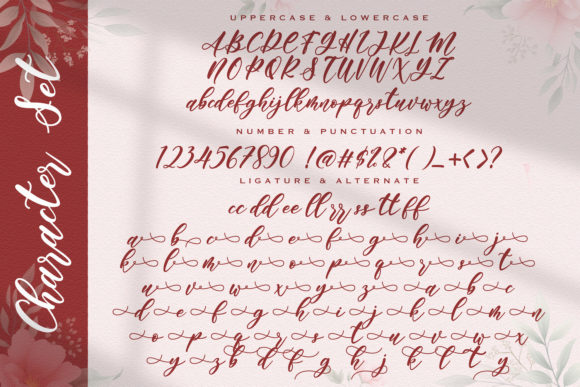 Character Set
UPPERCASE & LOWERCASE
ABCDEFGHIJKLM
NOPQRSTUVWXYZ
abcdefghijklmnopqrstuvwxyz
NUMBER & PUNCTUATION
1234567890 !@#$%&*( )_+<>?
LIGATURE & ALTERNATE
cc dd ee ll rr ss tt ff
a b c d e f g h i j
k l m n o p q r s t
u v w x y z a b c
d e f g h i j k l m n
o p q r s t u v w x
y z b d f g h j k l t y